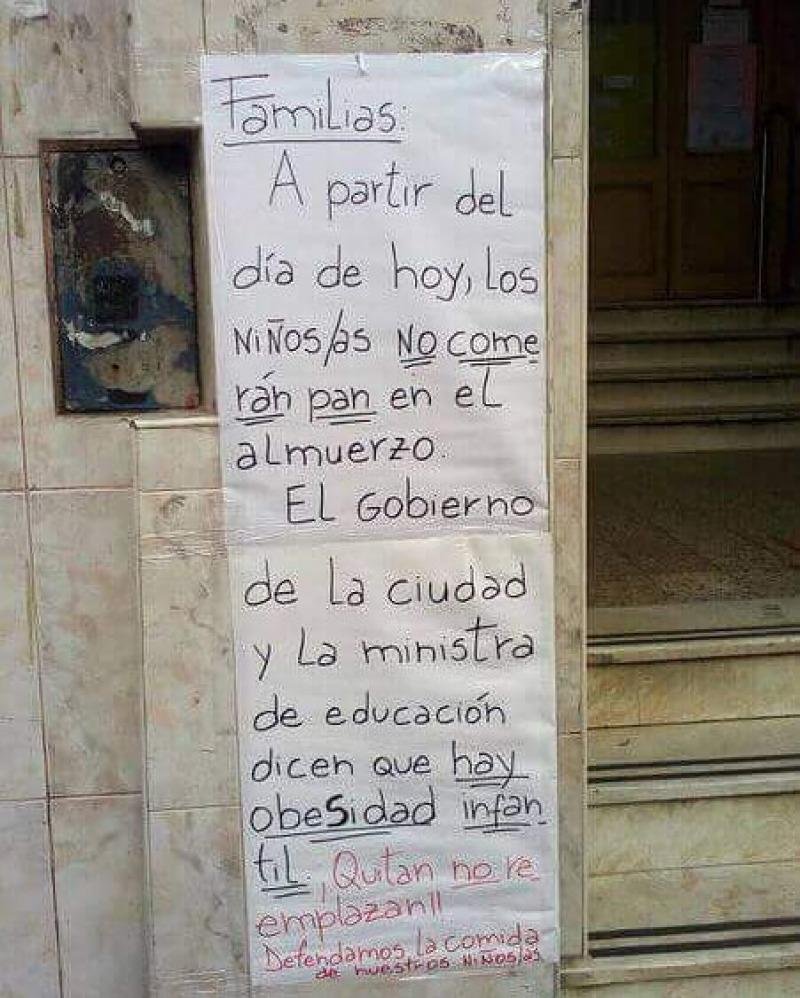 Familias:
A partir del
día de hoy, los
NiÑos/as NO come
rán pan en el
almuerzo.
El Gobierno
de la ciudad
y la ministra
de educación
dicen que hay
obesidad infan
til, ¡Quitan no re
emplazan!!
Defendamos la comida
de nuestros niños/as